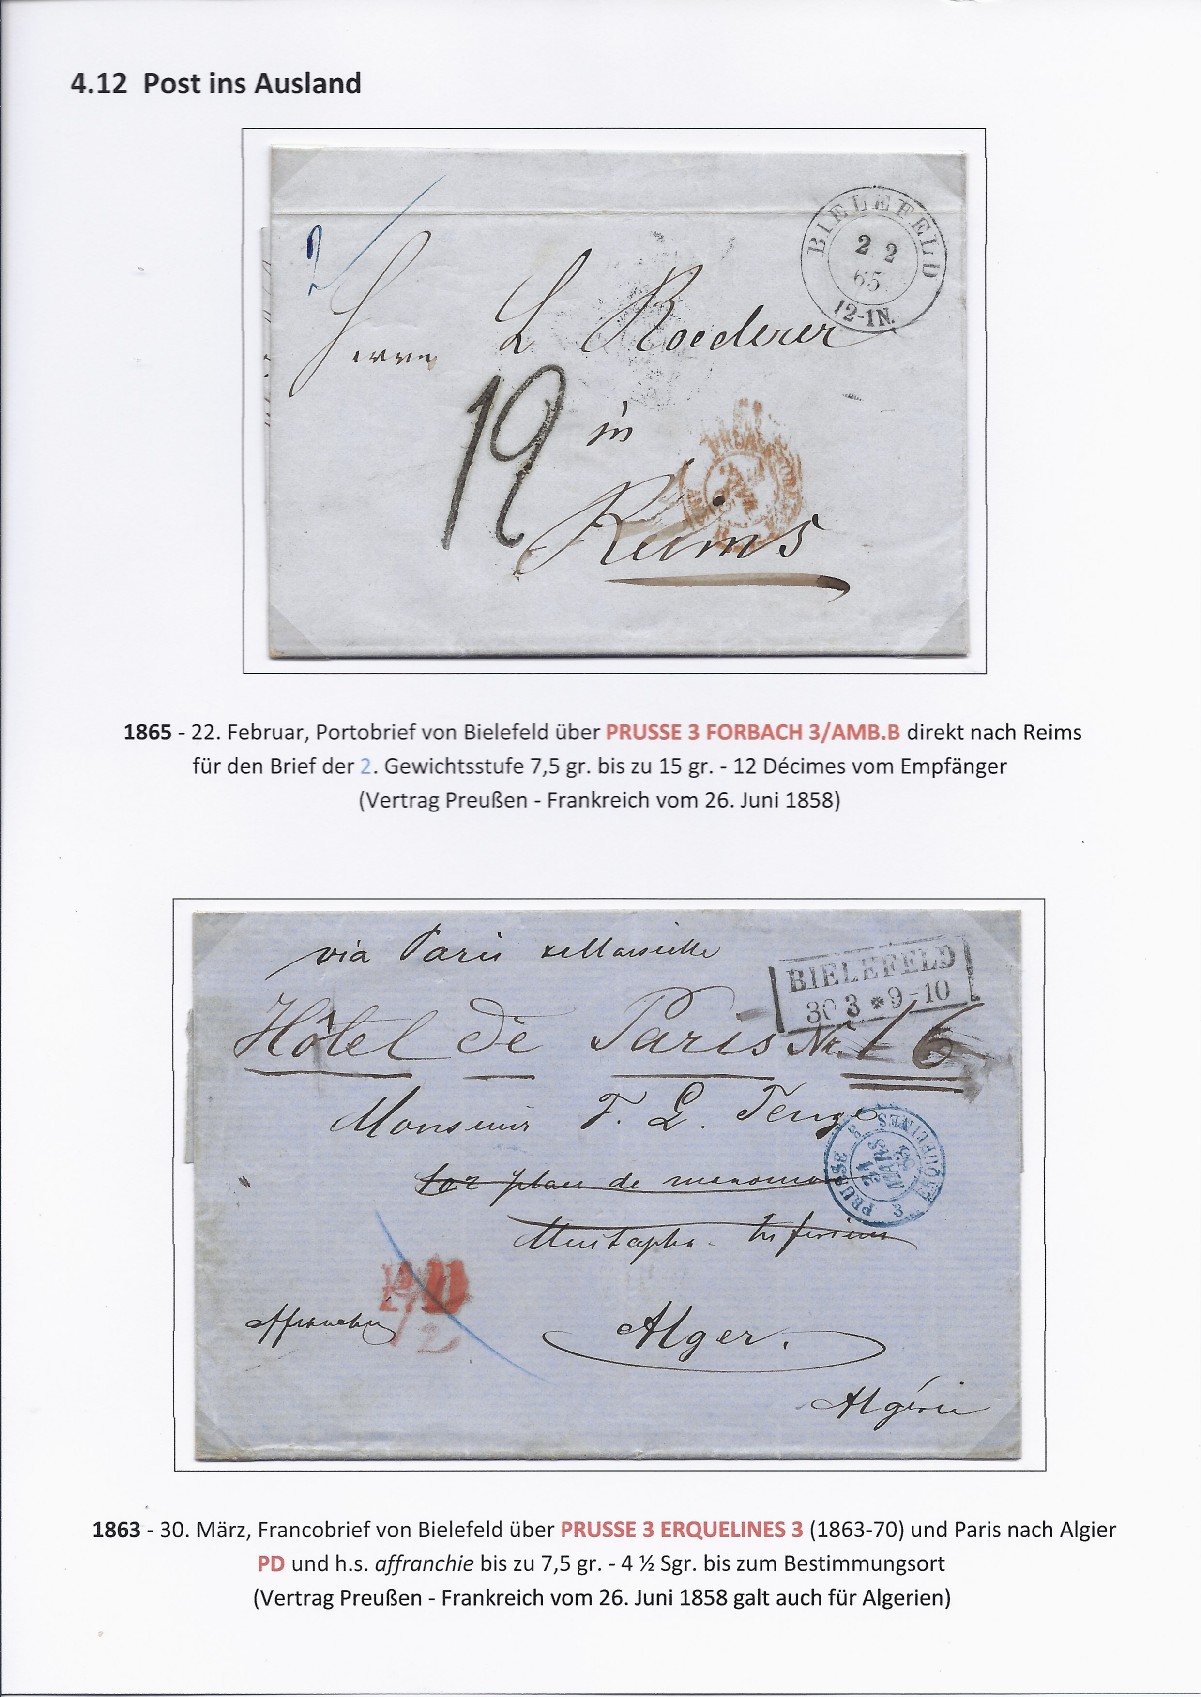 4.12 Post ins Ausland
2
BIELEFELD
2 2
65
12-1N.
Herrn L Roederer
12
in
Reims
1865 - 22. Februar, Portobrief von Bielefeld über PRUSSE 3 FORBACH 3/AMB.B direkt nach Reims
für den Brief der 2. Gewichtsstufe 7,5 gr. bis zu 15 gr. - 12 Décimes vom Empfänger
(Vertrag Preußen - Frankreich vom 26. Juni 1858)
via Paris
BIELEFELD
30 3 * 9-10
Hôtel de Paris Nr. 16
Monsieur F. G.
PRUSSE 3 ERQUELINES 3
31
MARS
63
Mustapha
PD
affranchie
Alger.
Algérie
1863 - 30. März, Francobrief von Bielefeld über PRUSSE 3 ERQUELINES 3 (1863-70) und Paris nach Algier
PD und h.s. affranchie bis zu 7,5 gr. - 4 ½ Sgr. bis zum Bestimmungsort
(Vertrag Preußen - Frankreich vom 26. Juni 1858 galt auch für Algerien)